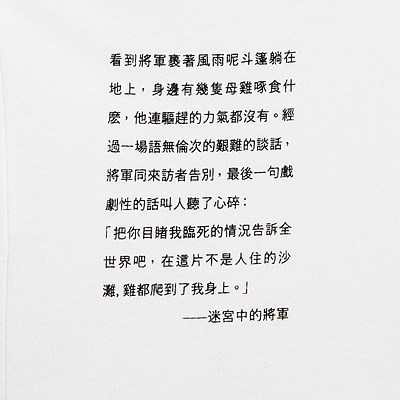 看到將軍裹著風雨呢斗篷躺在
地上，身邊有幾隻母雞啄食什
麽，他連驅趕的力氣都沒有。經
過一場語無倫次的艱難的談話，
將軍同來訪者告別，最後一句戲
劇性的話叫人聽了心碎：
「把你目睹我臨死的情況告訴全
世界吧，在這片不是人住的沙
灘,雞都爬到了我身上。」
——迷宮中的將軍